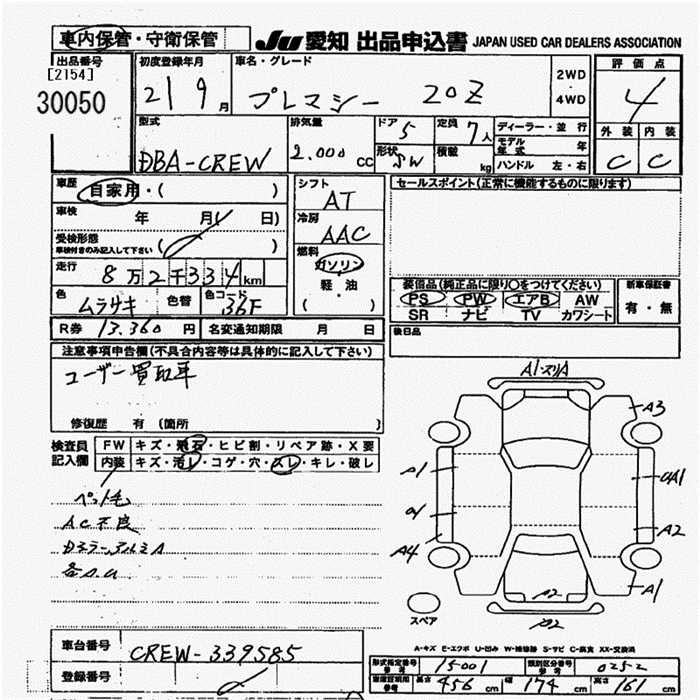 車内保管・守衛保管
JU 愛知 出品申込書 JAPAN USED CAR DEALERS ASSOCIATION
出品番号
[2154]
30050
初度登録年月
21 9月
車名・グレード
プレマシー 20Z
2WD
・
4WD
評価点
4
外装 内装
C C
型式
DBA-CREW
排気量
2.000 cc
ドア 5
形状 SW
定員 7人
積載 kg
ディーラー・並行
モデル年式 年
ハンドル 左・右
車歴
自家用・( )
車検 年 月 日)
受検形態
車検付きのみ記入して下さい ( )
走行 8万2千334km
色 ムラサキ 色替 色コード 36F
R券 13.360円 名変通知期限 月 日
シフト
AT
冷房
AAC
燃料
ガソリン
軽・油
( )
セールスポイント(正常に機能するものに限ります)
装備品(純正品に限り○をつけてください)
PS PW エアB AW
SR ナビ TV カワシート
新車保証書
有・無
後日品
注意事項申告欄(不具合内容等は具体的に記入して下さい)
ユーザー買取車
修復歴 有 (箇所 )
検査員
記入欄
FW キズ・飛石・ヒビ割・リペア跡・X要
内装 キズ・汚レ・コゲ・穴・スレ・キレ・破レ
ペット毛
AC不良
各A.U
A1・スリA
A3
A1
A4
A2
A1
スペア
A-キズ E-エクボ U-凹み W-補修跡 S-サビ C-腐食 XX-交換済
車台番号 CREW-339585
登録番号
型式指定番号 参考 15001 類別区分番号 参考 0252
長さ 456 cm 幅 174 cm 高さ 161 cm